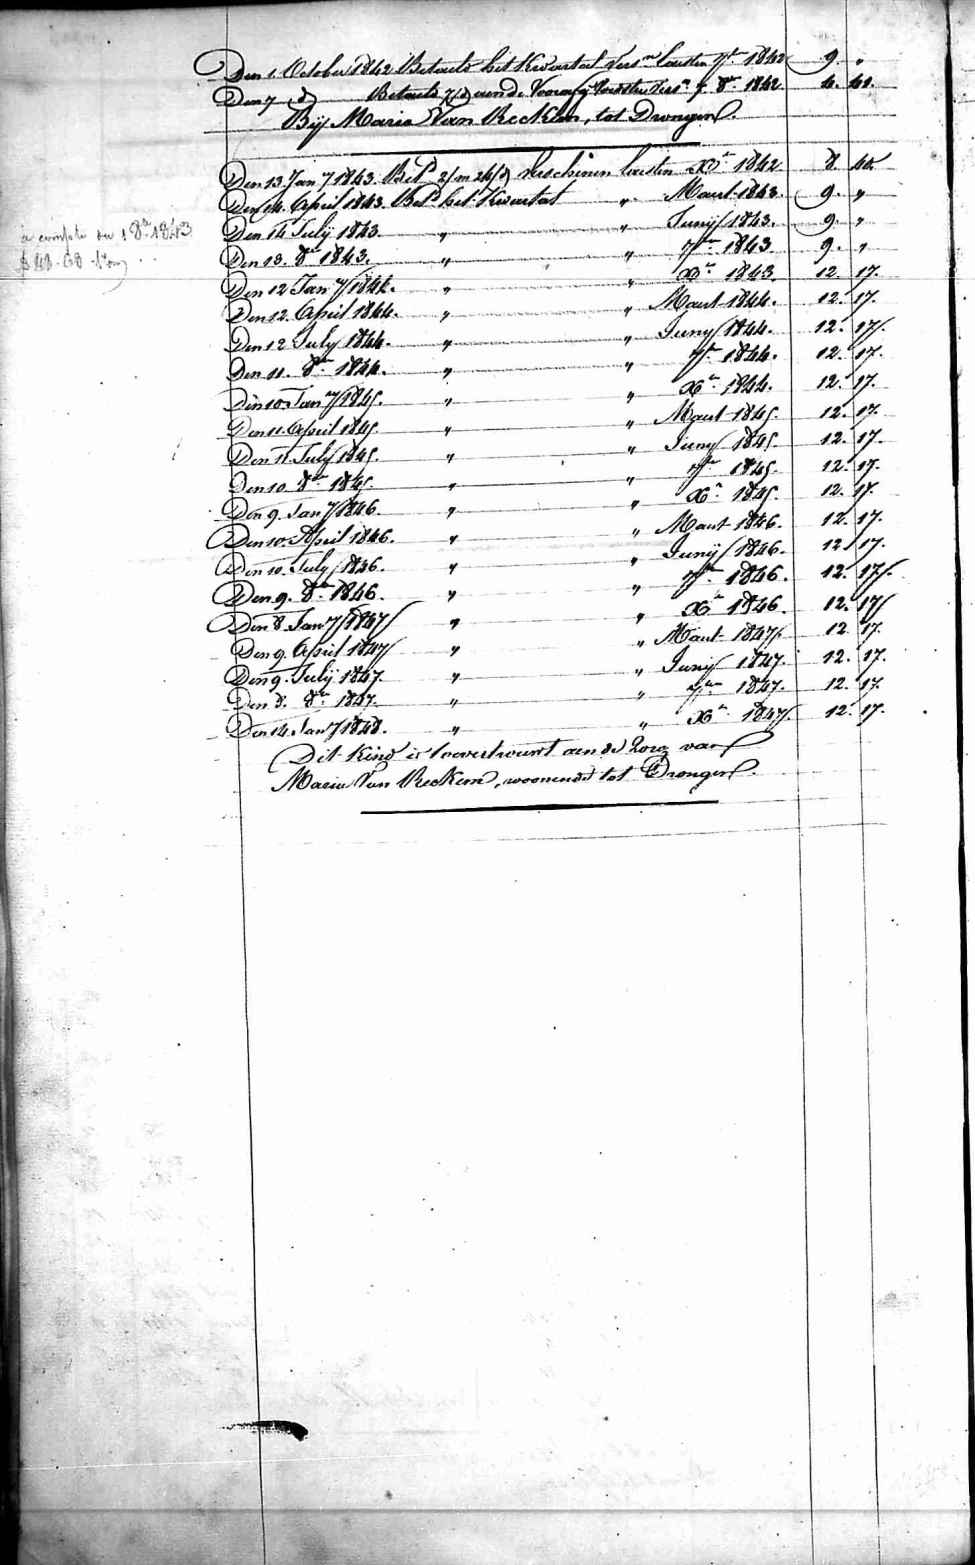 Den 1. October 1842 Betaeld het Kwartael Vers.n lasten 7bre 1842 9. "
Den 7 d° Betaeld aen de Voorafg. 8bre 1842 4. 41.
Bij Maria Van Reckem, tot Drongen.
Den 13 Jan.y 1843. Bet.d 2/m 24/d verschenen lasten Xbre 1842 8. 40
Den 14. April 1843. Bet.d het Kwartael " Maart 1843. 9. "
à compte du 1 8bre 1843
Den 14 July 1843. " " Junij 1843. 9. "
Den 13. 8bre 1843. " " 7bre 1843 9. "
Den 12 Jan.y 1844. " " Xbre 1843. 12. 17.
Den 12. April 1844. " " Maart 1844. 12. 17.
Den 12 July 1844. " " Juny 1844. 12. 17.
Den 11. 8bre 1844. " " 7bre 1844. 12. 17.
Den 10 Jan.y 1845. " " Xbre 1844. 12. 17.
Den 11. April 1845. " " Maart 1845. 12. 17.
Den 11. July 1845. " " Juny 1845. 12. 17.
Den 10. 8bre 1845. " " 7bre 1845. 12. 17.
Den 9. Jan.y 1846. " " Xbre 1845. 12. 17.
Den 10. April 1846. " " Maart 1846. 12. 17.
Den 10. July 1846. " " Junij 1846. 12. 17.
Den 9. 8bre 1846. " " 7bre 1846. 12. 17.
Den 8 Jan.y 1847 " " Xbre 1846. 12. 17
Den 9. April 1847 " " Maart 1847. 12 17.
Den 9. Julij 1847 " " Junij 1847. 12. 17.
Den 8. 8bre 1847. " " 7bre 1847. 12. 17.
Den 14. Jan.y 1848. " " Xbre 1847. 12. 17.
Dit Kind is toevertrouwt aen de Zorg van
Maria Van Reckem, woonende tot Drongen.